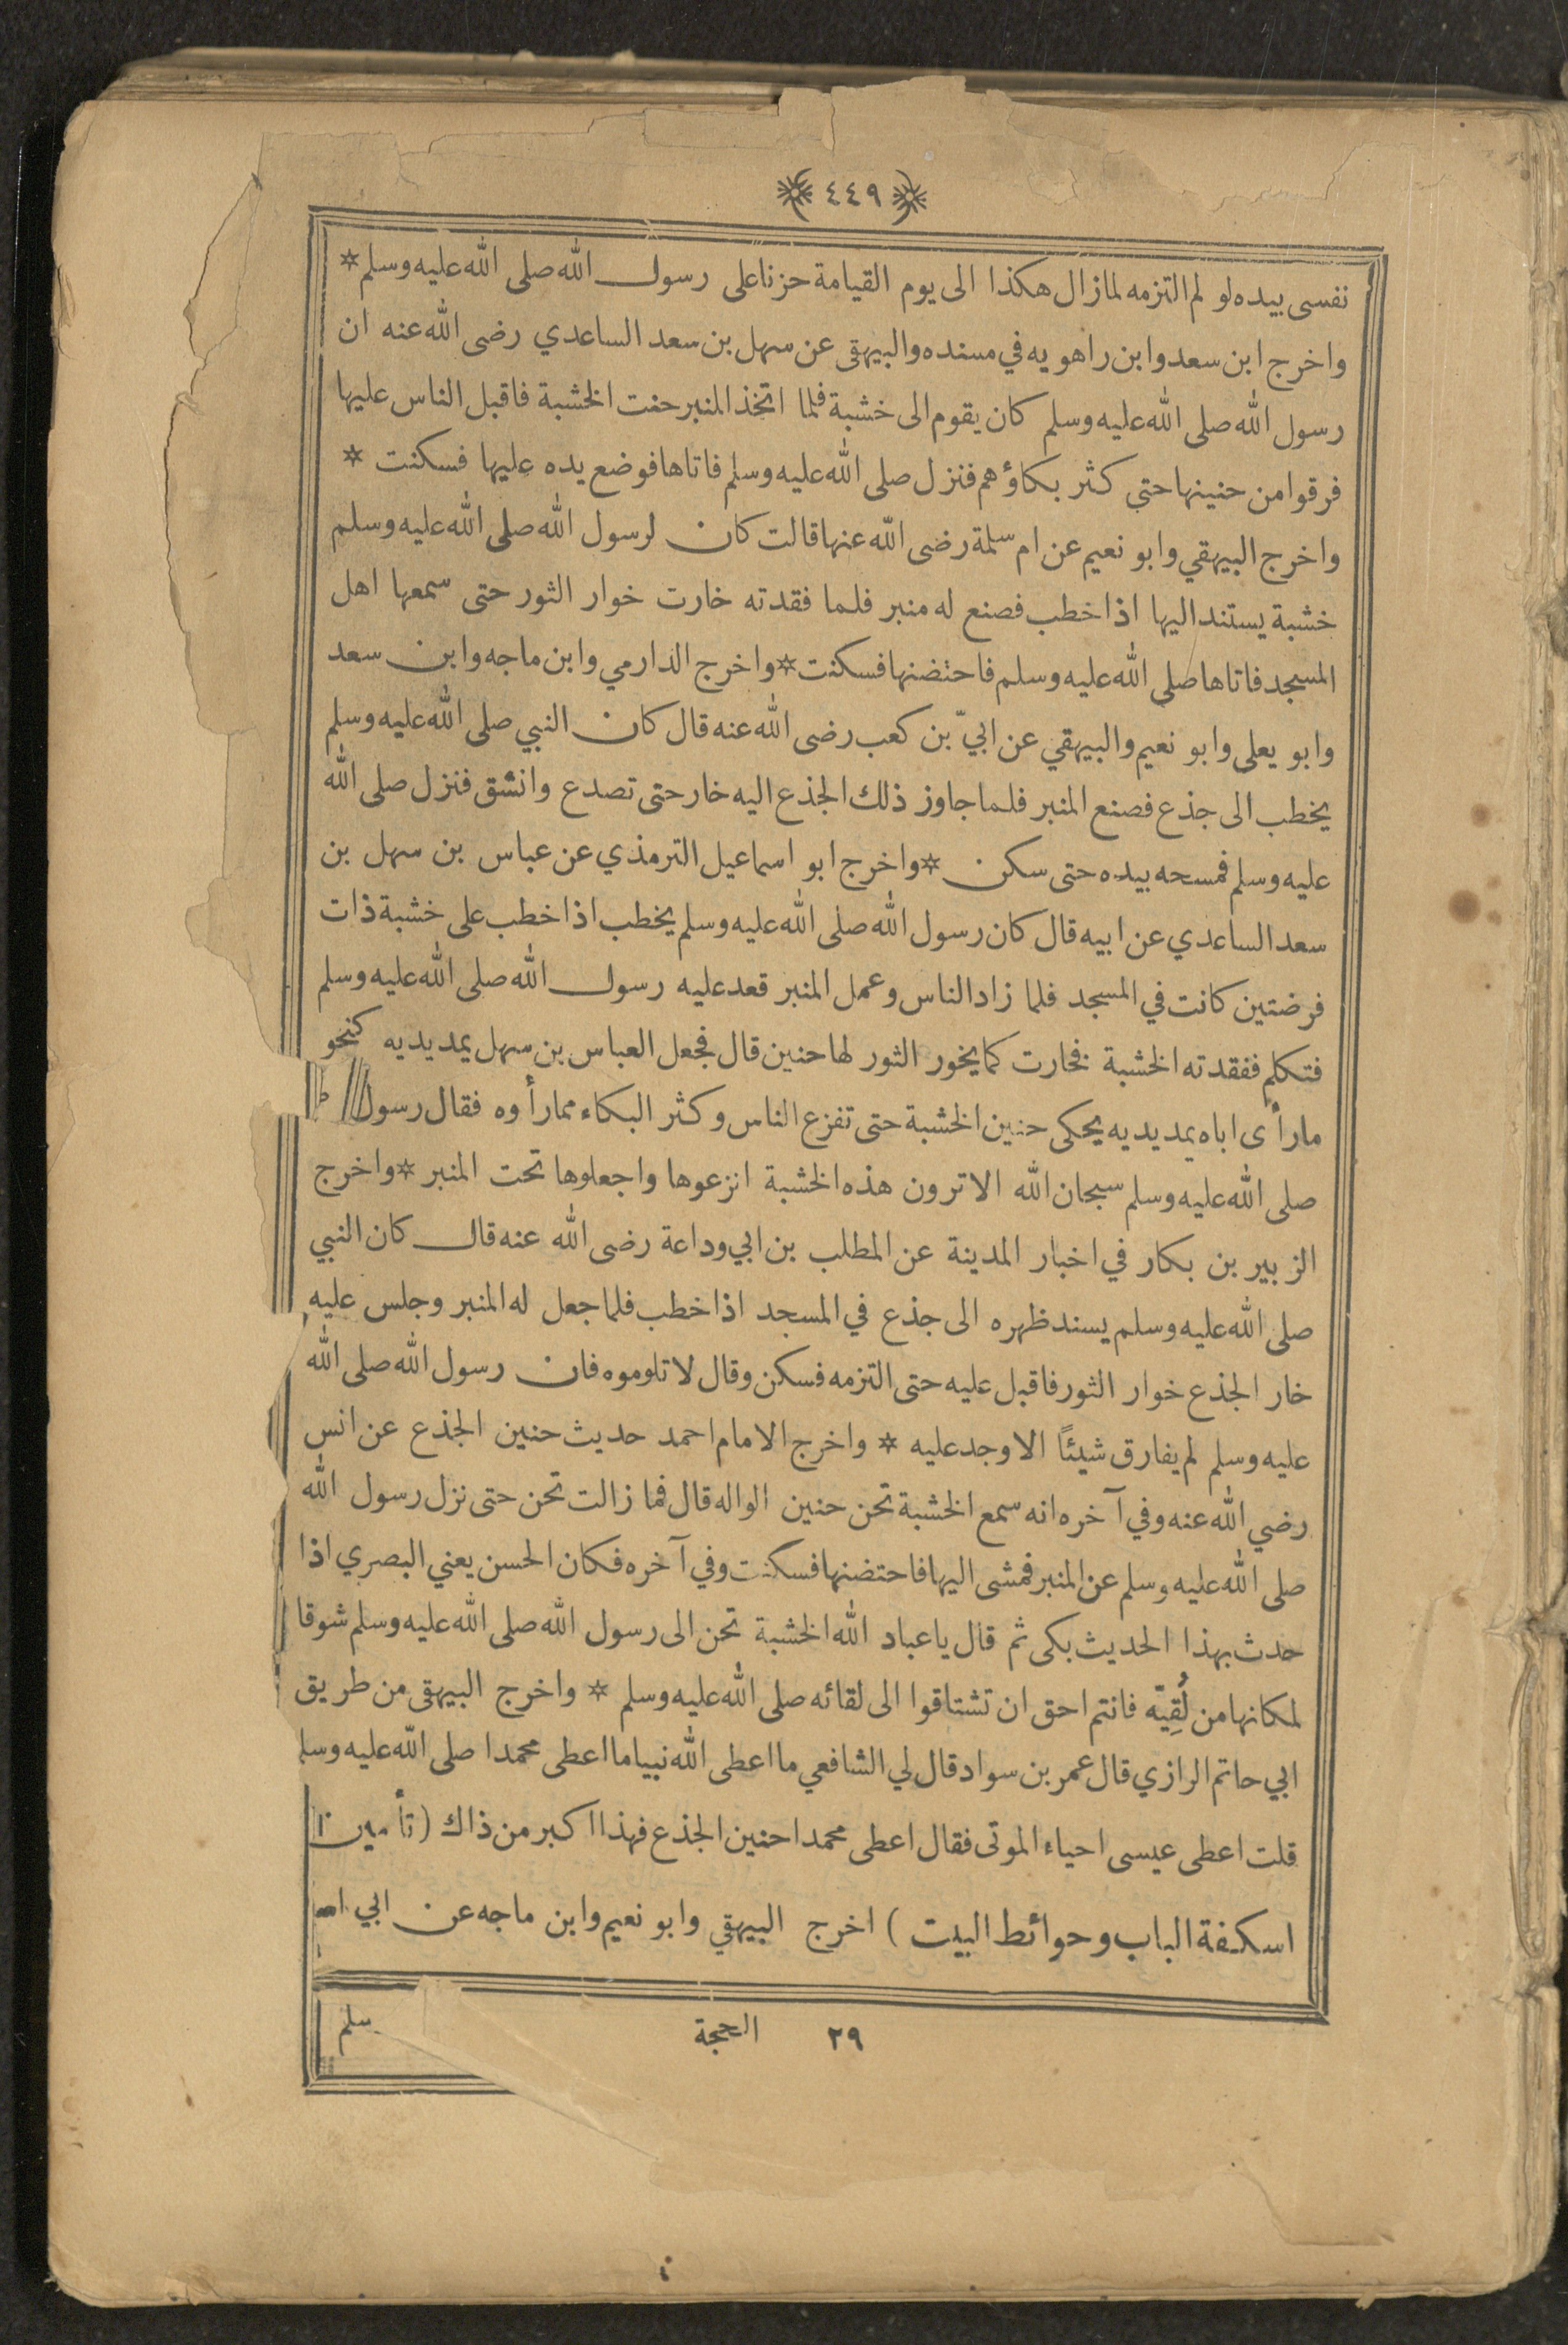 ٤٤٩
نفسى بيده لو لم التزمه لمازال هكذا الى يوم القيامة حزنا على رسول الله صلى الله عليه وسلم *
واخرج ابن سعد وابن راهويه في مسنده والبيهقى عن سهل بن سعد الساعدي رضى الله عنه ان
رسول الله صلى الله عليه وسلم كان يقوم الى خشبة فلما اتخذ المنبر حنت الخشبة فاقبل الناس عليها
فرقوا من حنينها حتى كثر بكاؤهم فنزل صلى الله عليه وسلم فاتاها فوضع يده عليها فسكنت *
واخرج البيهقي وابو نعيم عن ام سلمة رضى الله عنها قالت كان لرسول الله صلى الله عليه وسلم
خشبة يستند اليها اذا خطب فصنع له منبر فلما فقدته خارت خوار الثور حتى سمعها اهل
المسجد فاتاها صلى الله عليه وسلم فاحتضنها فسكنت * واخرج الدارمي وابن ماجه وابن سعد
وابو يعلى وابو نعيم والبيهقي عن ابيّ بن كعب رضى الله عنه قال كان النبي صلى الله عليه وسلم
يخطب الى جذع فصنع المنبر فلما جاوز ذلك الجذع اليه خار حتى تصدع وانشق فنزل صلى الله
عليه وسلم فمسحه بيده حتى سكن * واخرج ابو اسماعيل الترمذي عن عباس بن سهل بن
سعد الساعدي عن ابيه قال كان رسول الله صلى الله عليه وسلم يخطب اذا خطب على خشبة ذات
فرضتين كانت في المسجد فلما زاد الناس وعمل المنبر قعد عليه رسول الله صلى الله عليه وسلم
فتكلم ففقدته الخشبة فخارت كما يخور الثور لها حنين قال فجعل العباس بن سهل يمد يديه كنحو
مارأى اباه يمد يديه يحكى حنين الخشبة حتى تفزع الناس وكثر البكاء ممارأوه فقال رسول
صلى الله عليه وسلم سبحان الله الا ترون هذه الخشبة انزعوها واجعلوها تحت المنبر * واخرج
الزبير بن بكار في اخبار المدينة عن المطلب بن ابي وداعة رضى الله عنه قال كان النبي
صلى الله عليه وسلم يسند ظهره الى جذع في المسجد اذا خطب فلما جعل له المنبر وجلس عليه
خار الجذع خوار الثور فاقبل عليه حتى التزمه فسكن وقال لا تلوموه فان رسول الله صلى الله
عليه وسلم لم يفارق شيئًا الا وجد عليه * واخرج الامام احمد حديث حنين الجذع عن انس
رضي الله عنه وفي آخره انه سمع الخشبة تحن حنين الواله قال فما زالت تحن حتى نزل رسول الله
صلى الله عليه وسلم عن المنبر فمشى اليها فاحتضنها فسكنت وفي آخره فكان الحسن يعني البصري اذا
حدث بهذا الحديث بكى ثم قال يا عباد الله الخشبة تحن الى رسول الله صلى الله عليه وسلم شوقا
لمكانها من لُقِيّه فانتم احق ان تشتاقوا الى لقائه صلى الله عليه وسلم * واخرج البيهقى من طريق
ابي حاتم الرازي قال عمر بن سواد قال لي الشافعي ما اعطى الله نبيا ما اعطى محمدا صلى الله عليه وسلم
قلت اعطى عيسى احياء الموتى فقال اعطى محمدا حنين الجذع فهذا اكبر من ذاك (تأمين
اسكفة الباب وحوائط البيت) اخرج البيهقي وابو نعيم وابن ماجه عن ابي
٢٩ الحجة
سلم